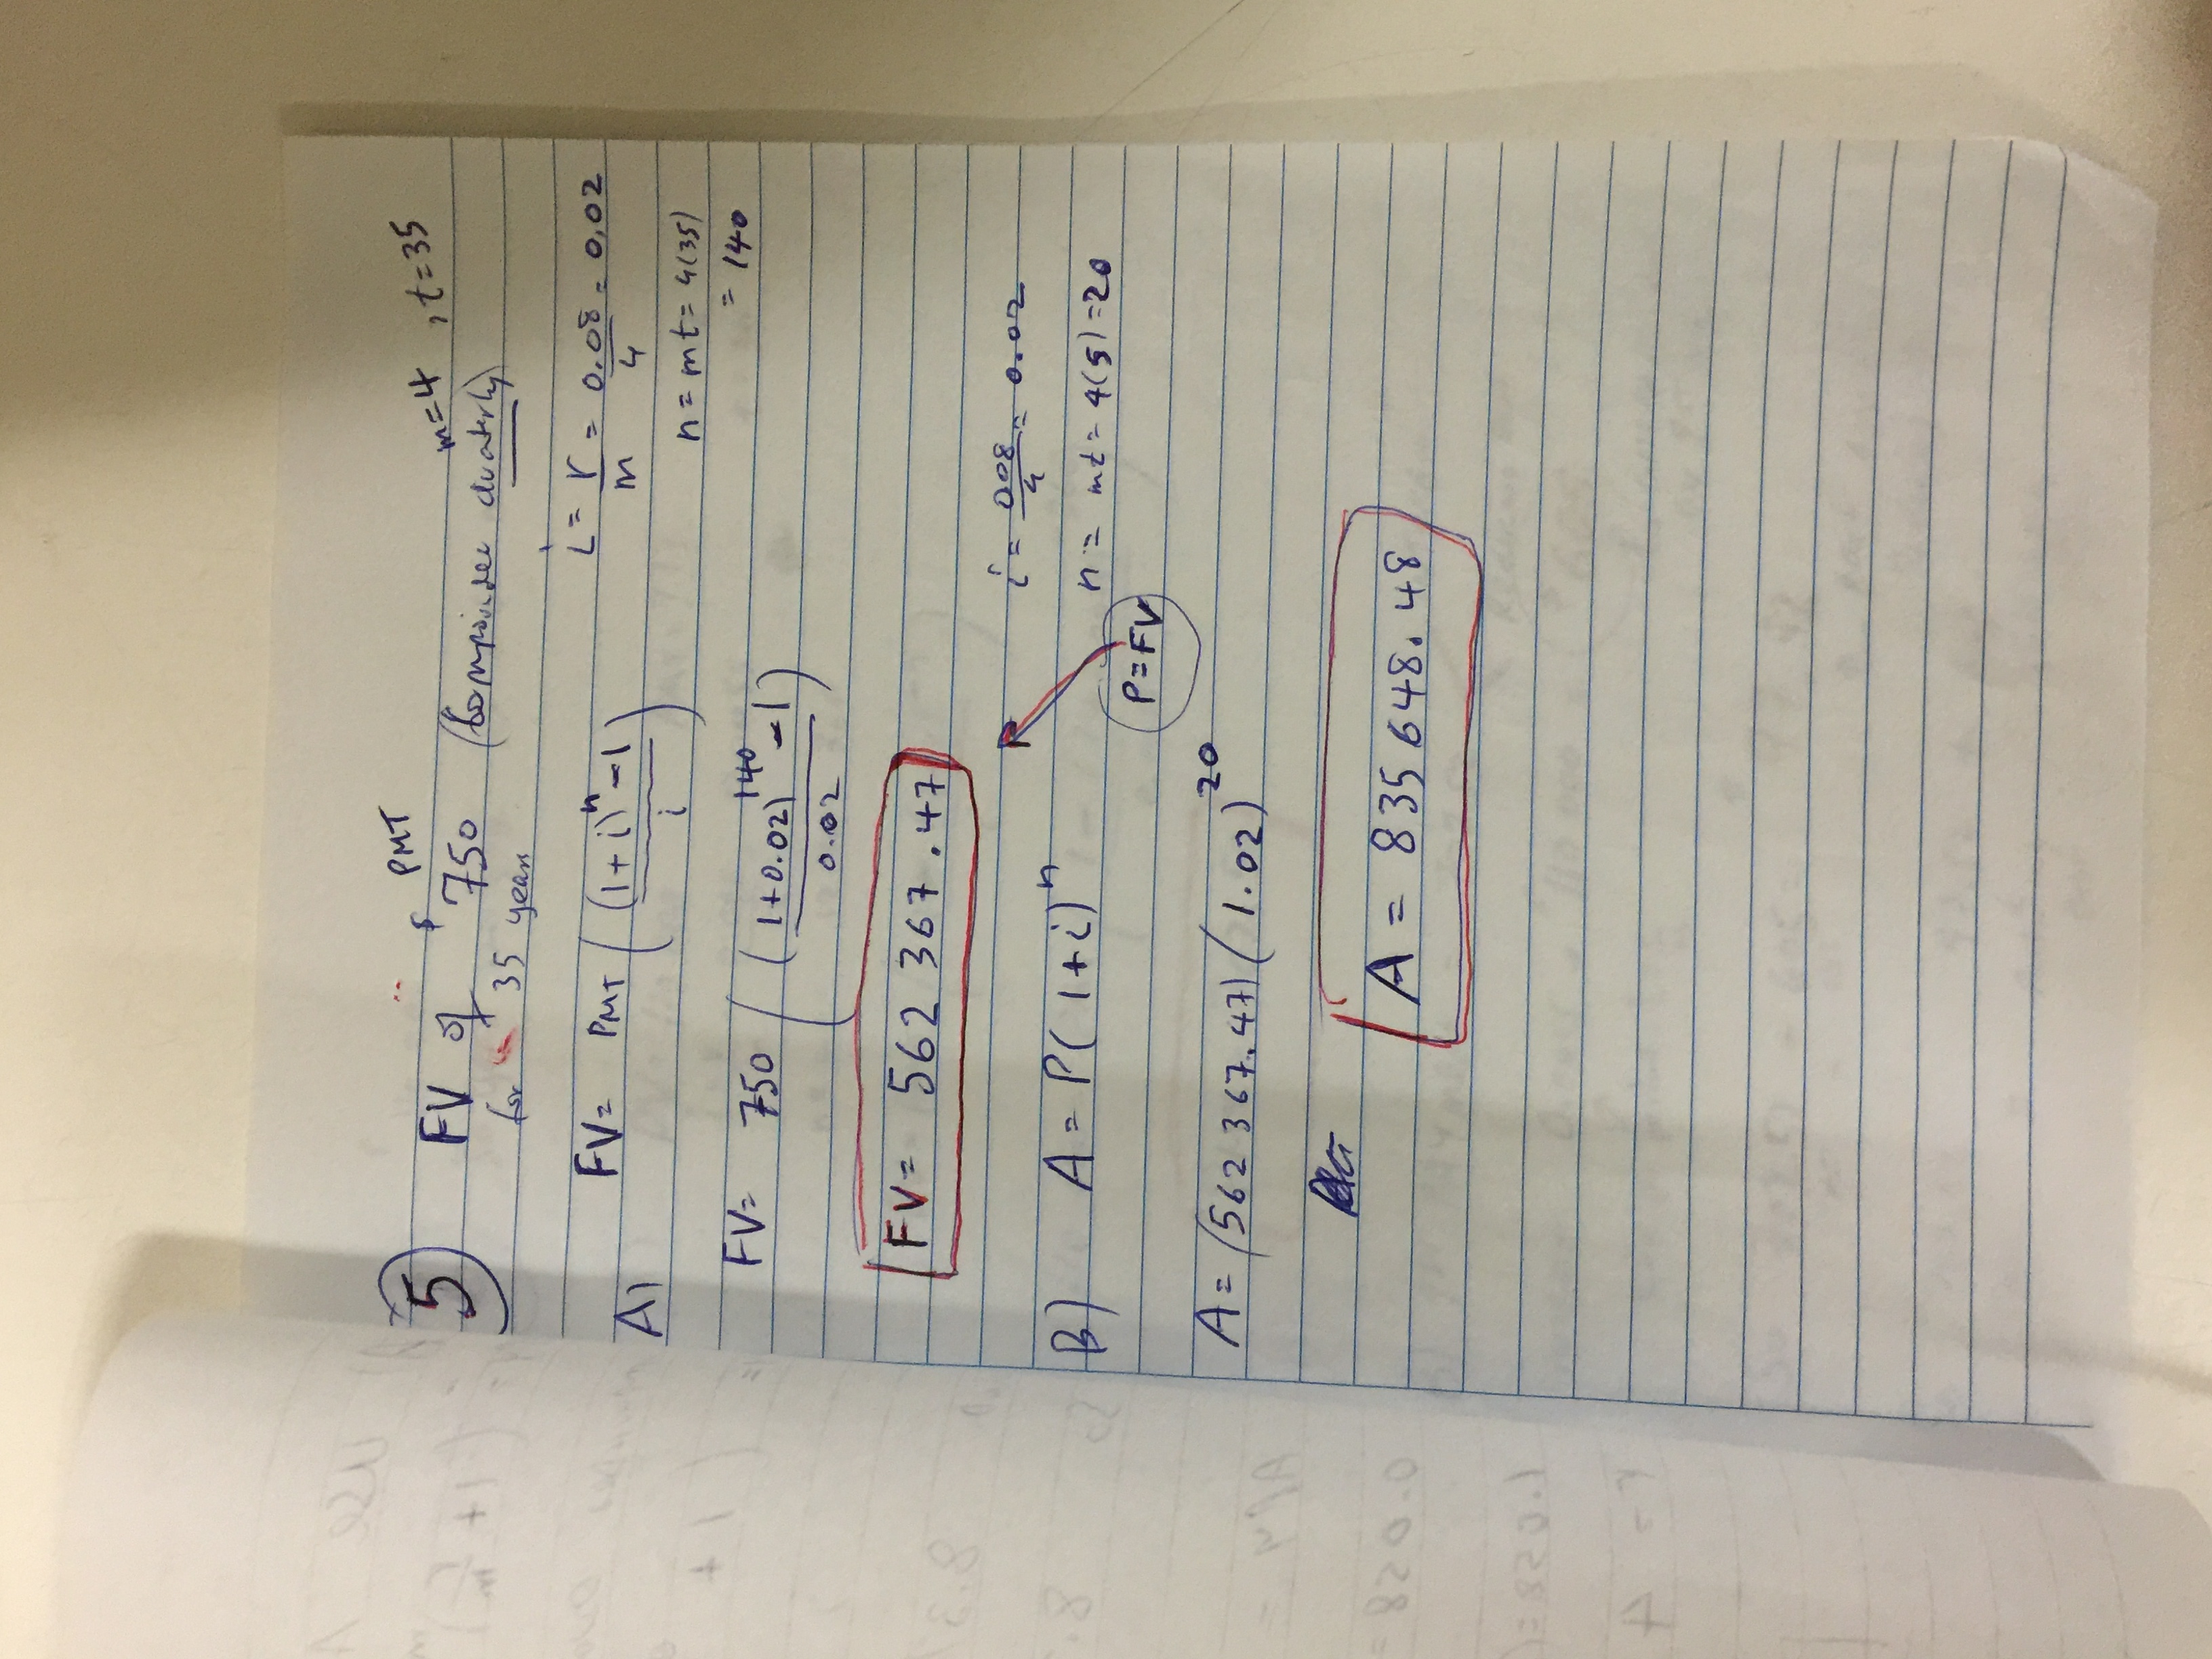 PMT
5 FV of $ 750 (compounded quaterly) m=4, t=35
for 35 years
A) FV= PMT ( (1+i)^n -1 / i ) i = r/m = 0.08/4 = 0.02
n = mt = 4(35)
= 140
FV= 750 ( (1+0.02)^140 -1 / 0.02 )
FV= 562 367.47
i = 0.08/4 = 0.02
B) A = P(1+i)^n n = mt = 4(5) = 20
P=FV
A= (562 367.47)(1.02)^20
A = 835 648.48